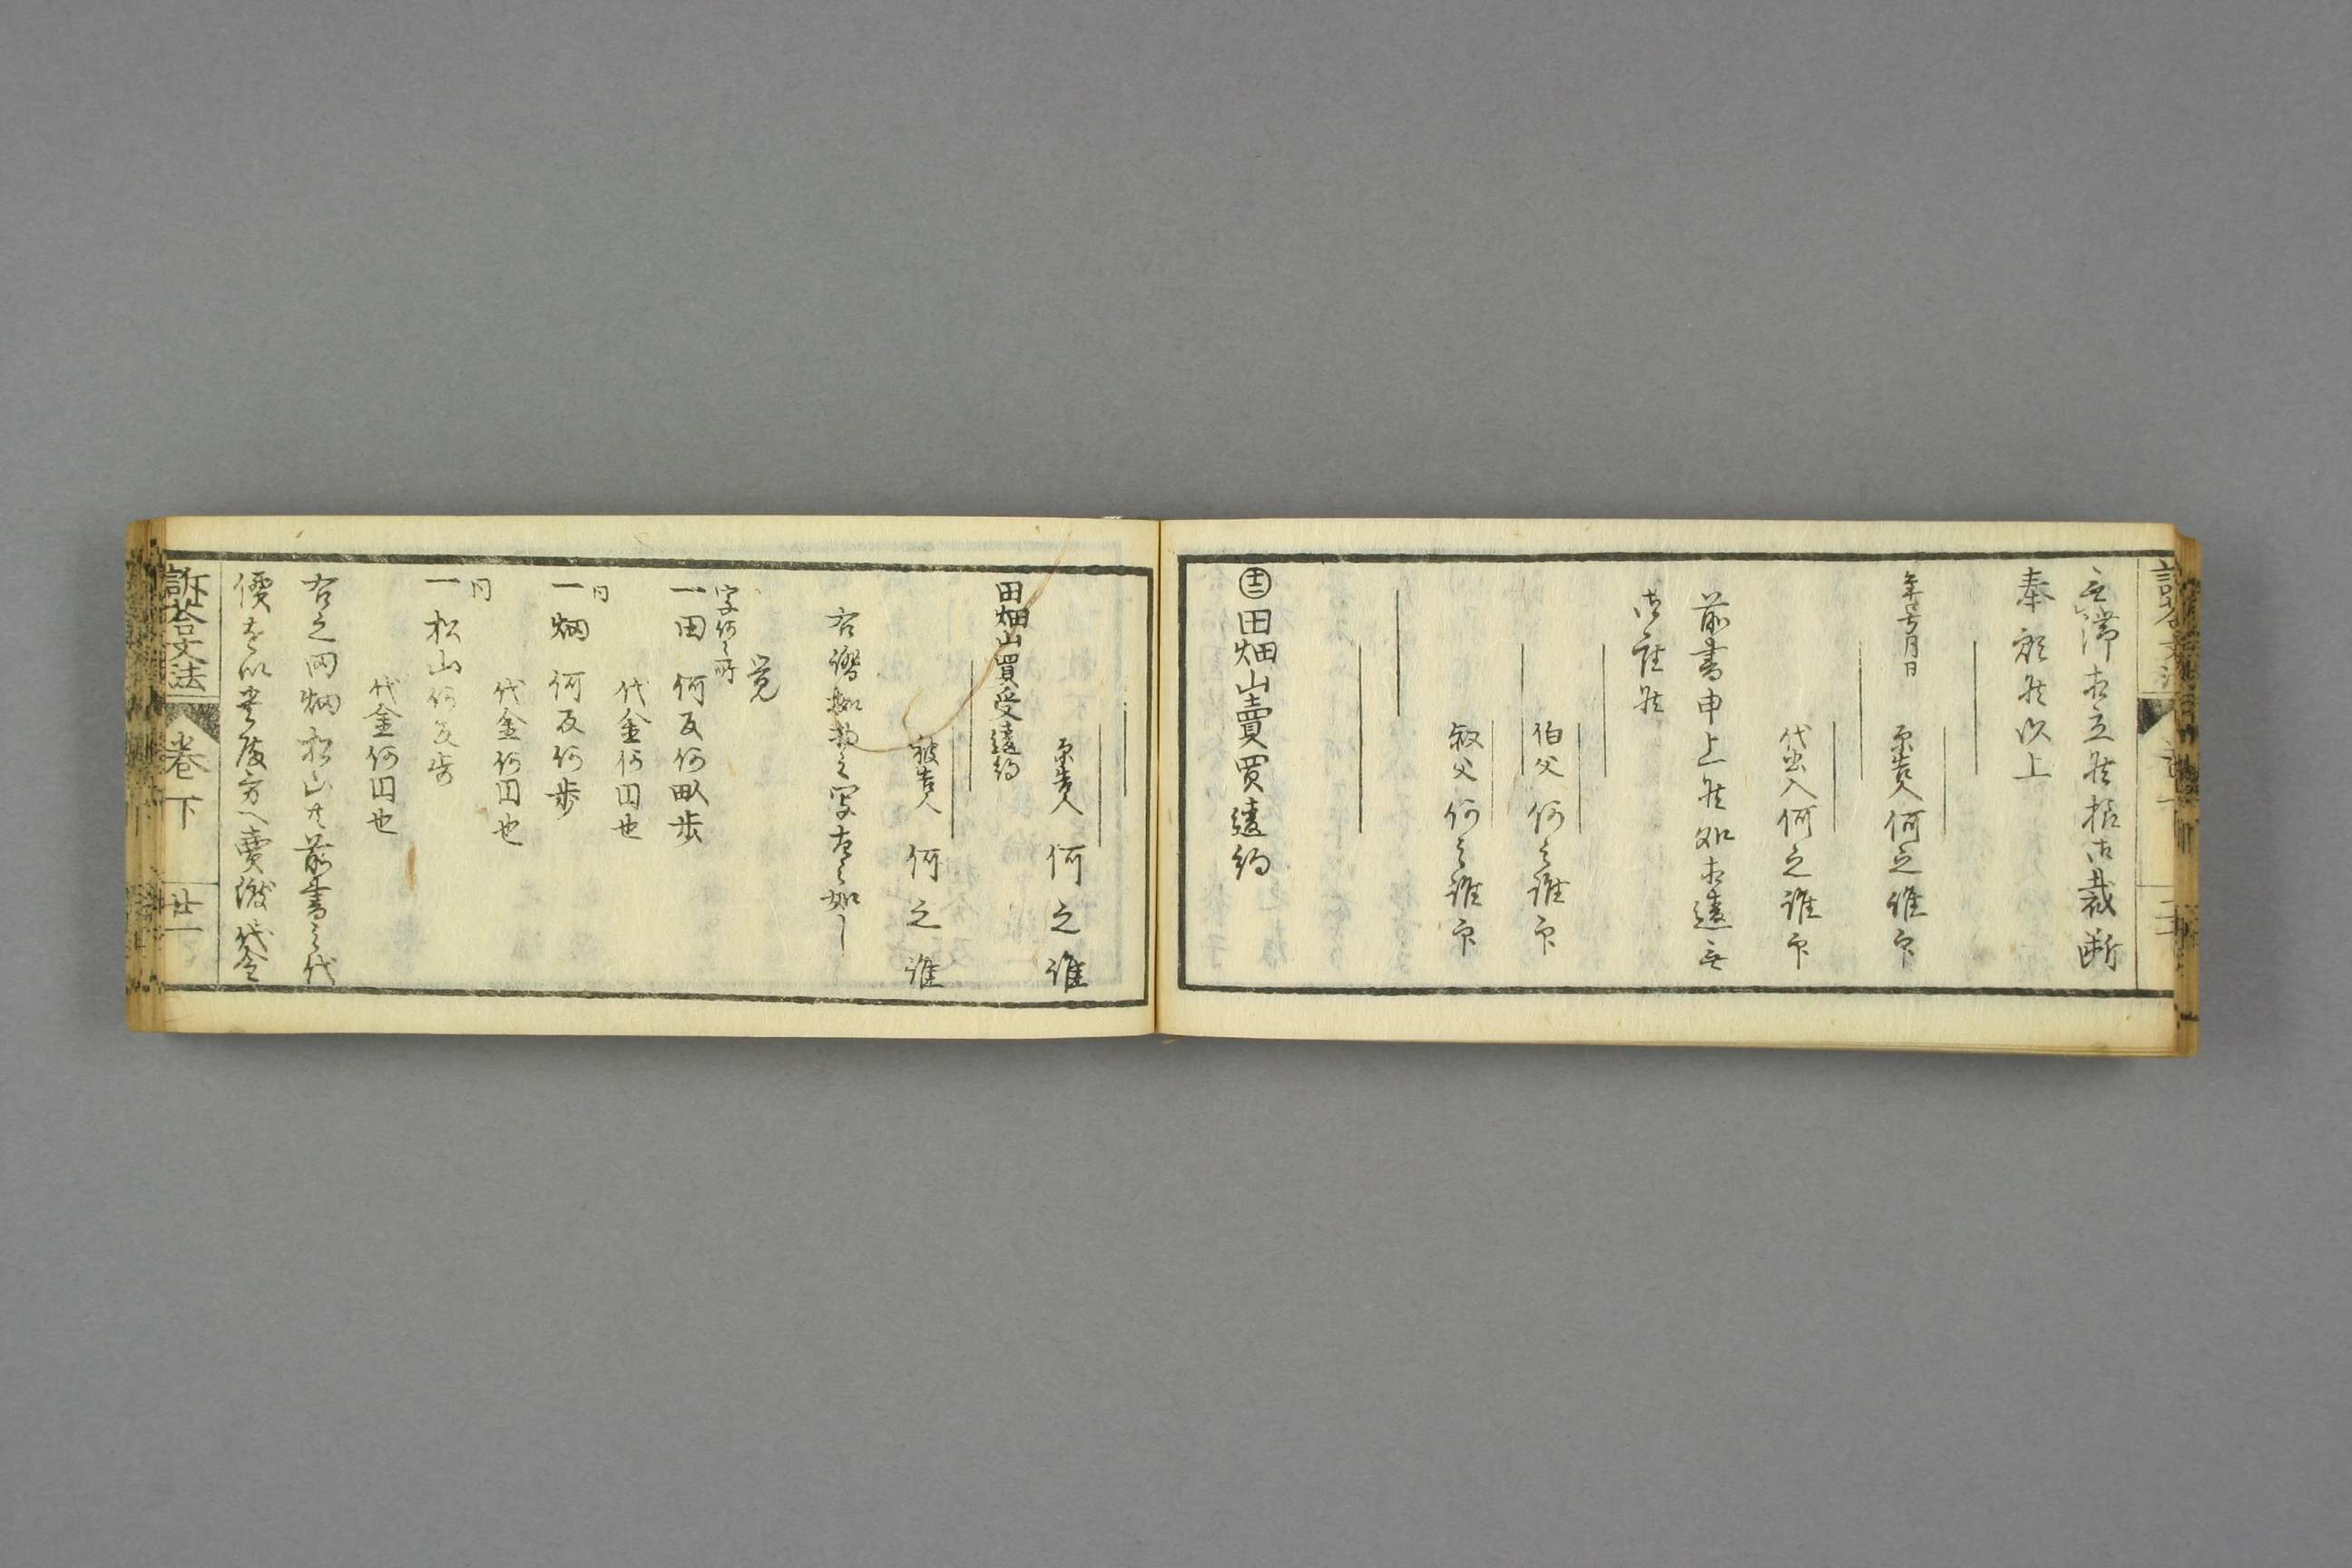 無滞相立候様御裁断
奉願候以上
年号月日
原告人何之誰印
代書人何之誰印
前書申上候処相違無
御座候
伯父何之誰印
叔父何之誰印
十二 田畑山賣買違約
原告人 何之誰
田畑山買受違約
被告人 何之誰
右證拠物之寫左之如し
覚
字何之所
一田何反何畝歩
代金何円也
同
一畑何反何歩
代金何円也
同
一松山何反歩
代金何円也
右之田畑松山共前書之代
價を以貴殿方へ賣渡代金
訴答文法 巻下 廿一